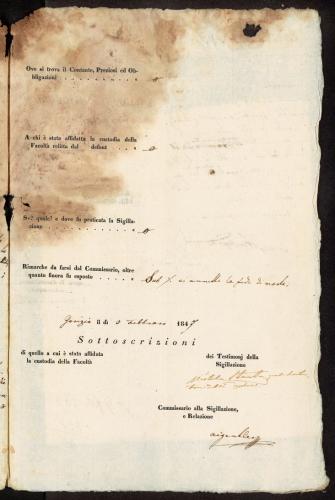 Ove si trova il Contante, Preziosi ed Ob-
bligazioni . . . . . . . . . . . o
A chi è stata affidata la custodia della
Facoltà relitta del defont . . . o
S'è quale? e dove fu praticata la Sigilla-
zione . . . . . . . . . . . . o
Rimarche da farsi dal Commissario, oltre
quanto finora fu esposto . . . . Sub ./. si annette la fede di morte.
Gorizia li di 3 Febbraro 1847
Sottoscrizioni
di quello a cui è stata affidata
la custodia della Facoltà
dei Testimonj della
Sigillazione
Commissario alla Sigillazione,
e Relazione